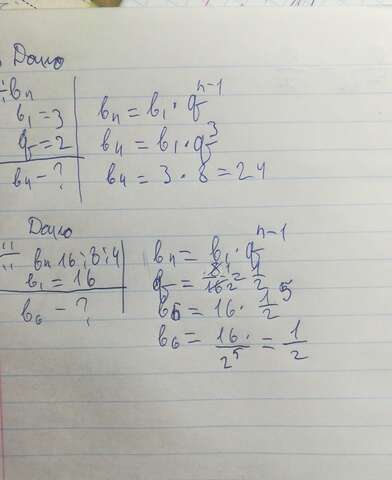 Дано
÷ bn
b1 = 3
q = 2
b4 - ?
bn = b1 · q^n-1
b4 = b1 · q^3
b4 = 3 · 8 = 24
Дано
÷ bn 16; 8; 4
b1 = 16
b6 - ?
bn = b1 · q^n-1
q = 8/16 = 1/2
b6 = 16 · 1/2^5
b6 = 16/2^5 = 1/2